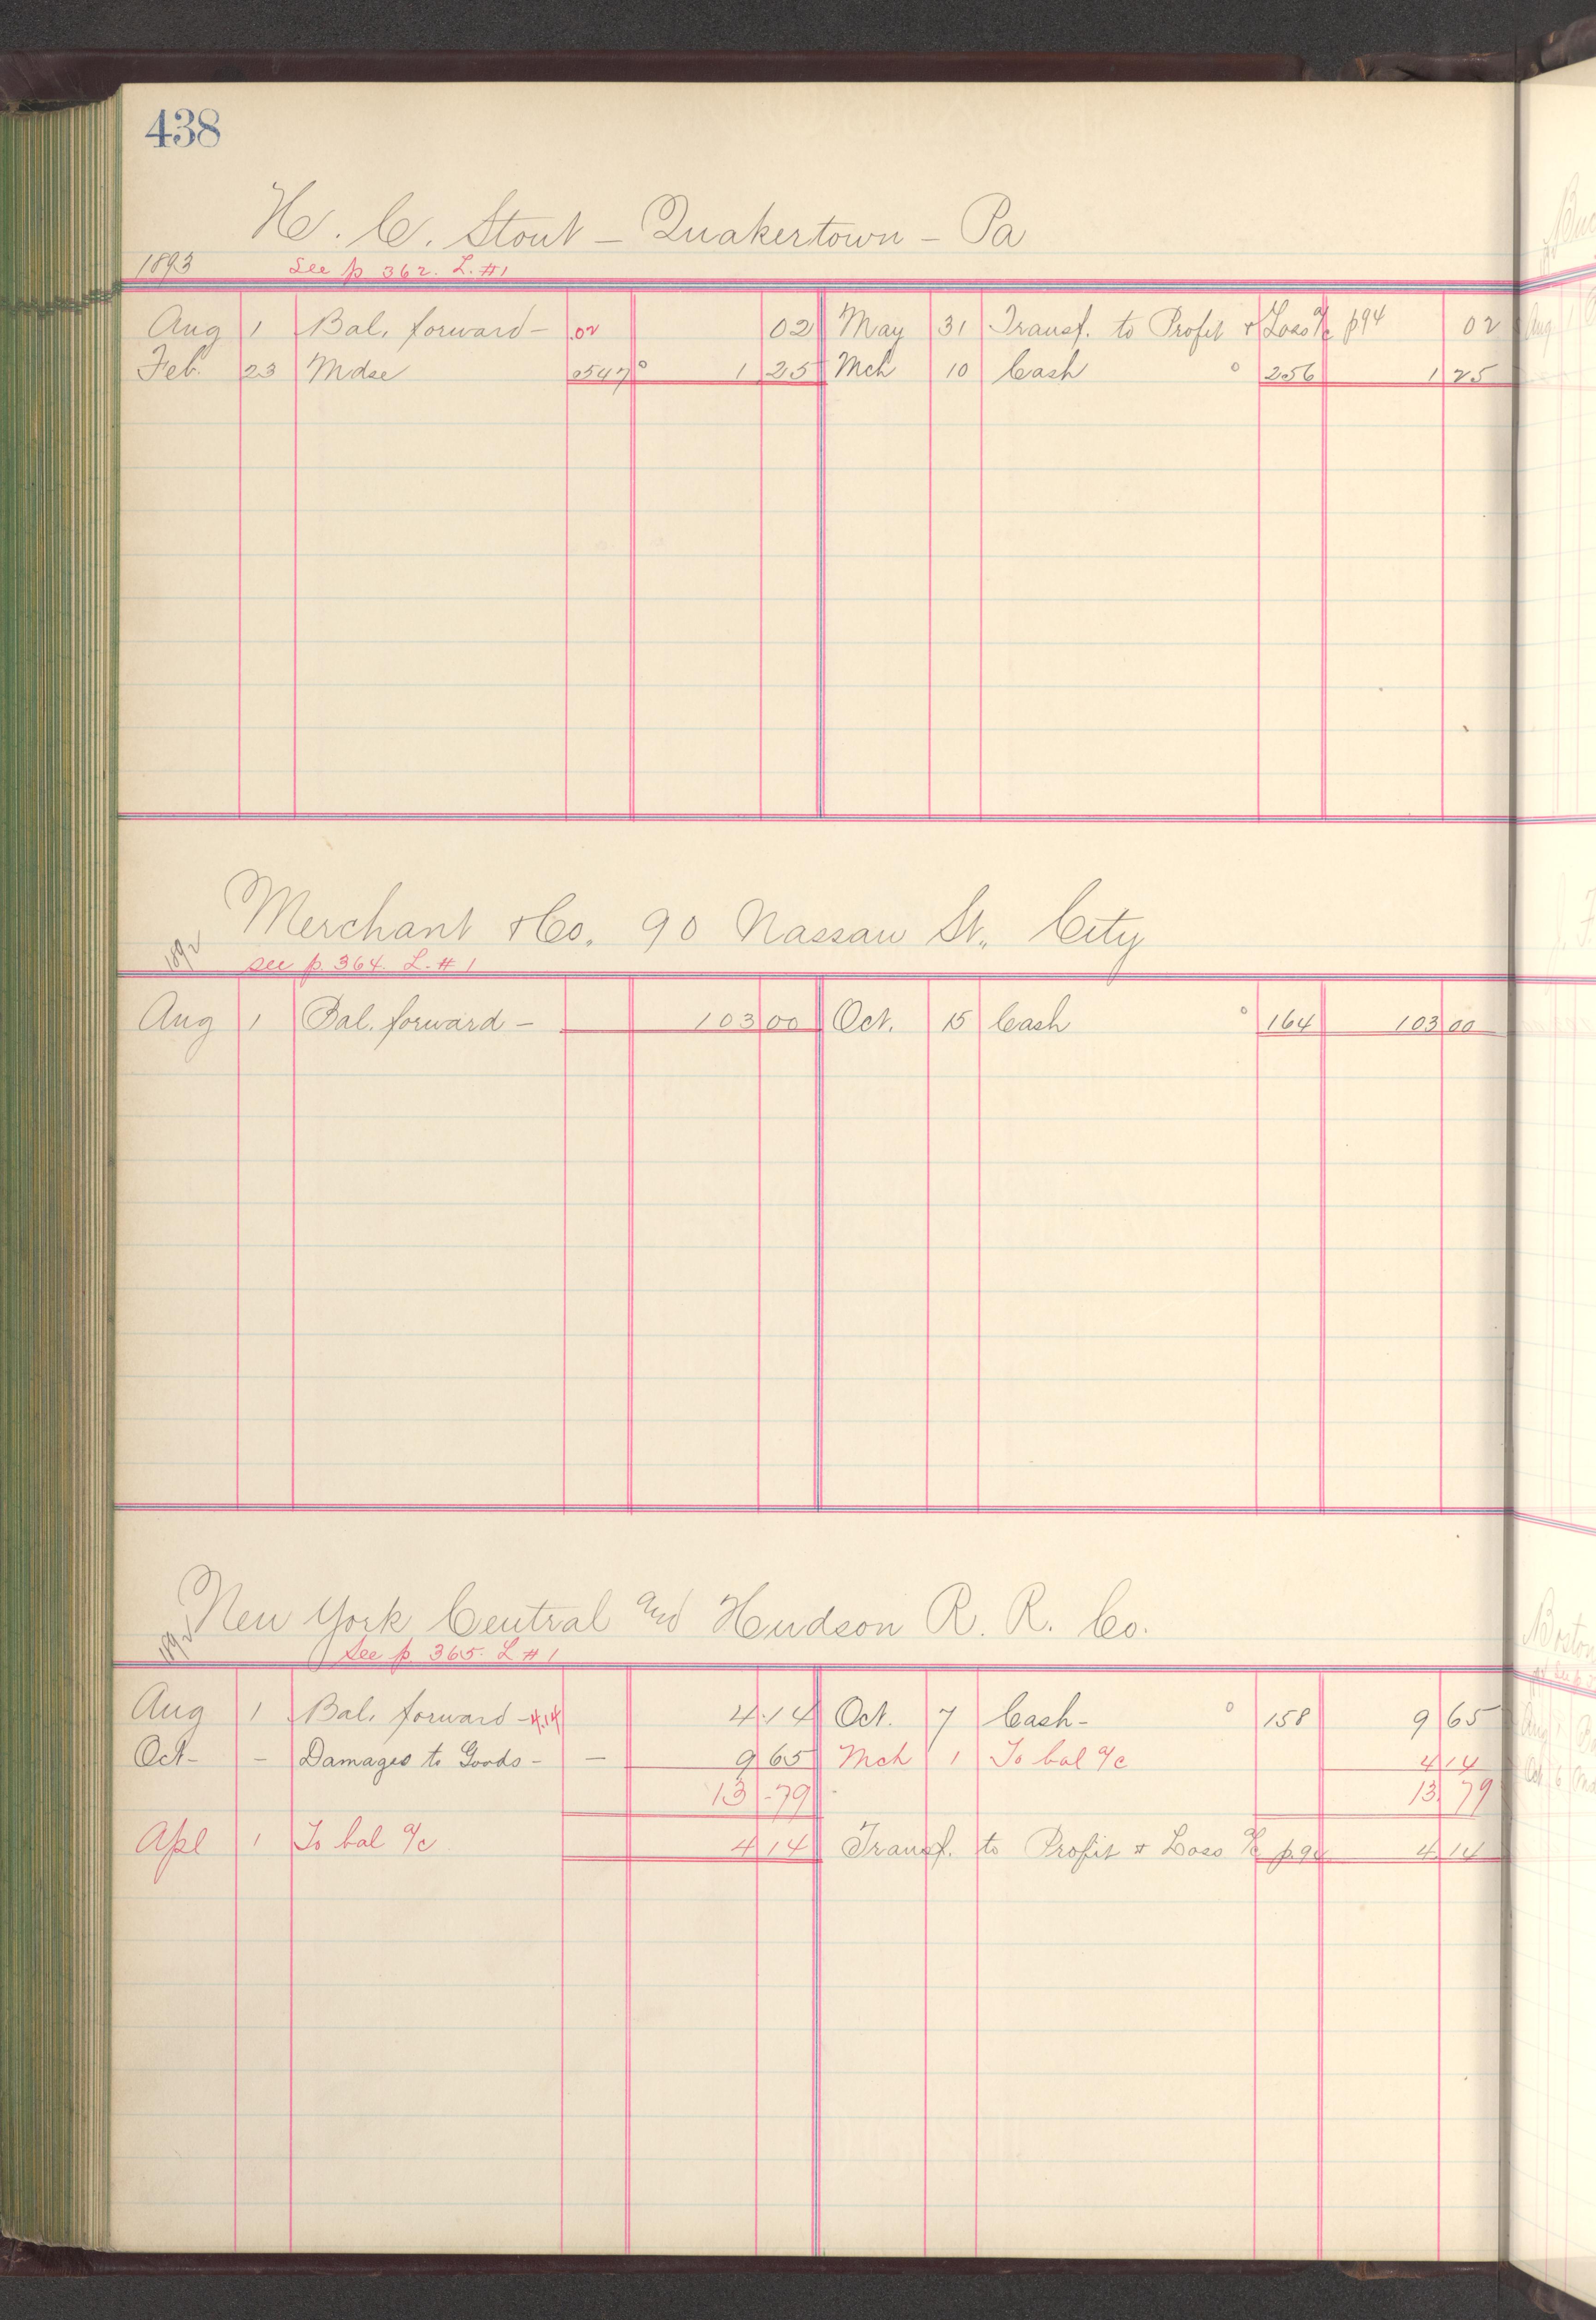 438
H. C. Stout - Quakertown - Pa
1893 See p 362. L. #1
Aug 1 Bal. forward - .02 02 May 31 Transf. to Profit & Loss a/c p94 02
Feb. 23 Mdse 2547 1 25 Mch 10 Cash 256 1 25
Merchant & Co. 90 Nassau St., City
1892 see p. 364. L. #1
Aug 1 Bal. forward - 103 00 Oct. 15 Cash 164 103 00
New York Central and Hudson R. R. Co.
1892 See p. 365. L #1
Aug 1 Bal. forward - 4.14 4.14 Oct. 7 Cash - 158 9 65
Oct - - Damages to Goods - - 9 65 Mch 1 To bal a/c 4 14
13.79 13 79
Apl 1 To bal a/c 4 14 Transf. to Profit & Loss a/c p.94 4 14